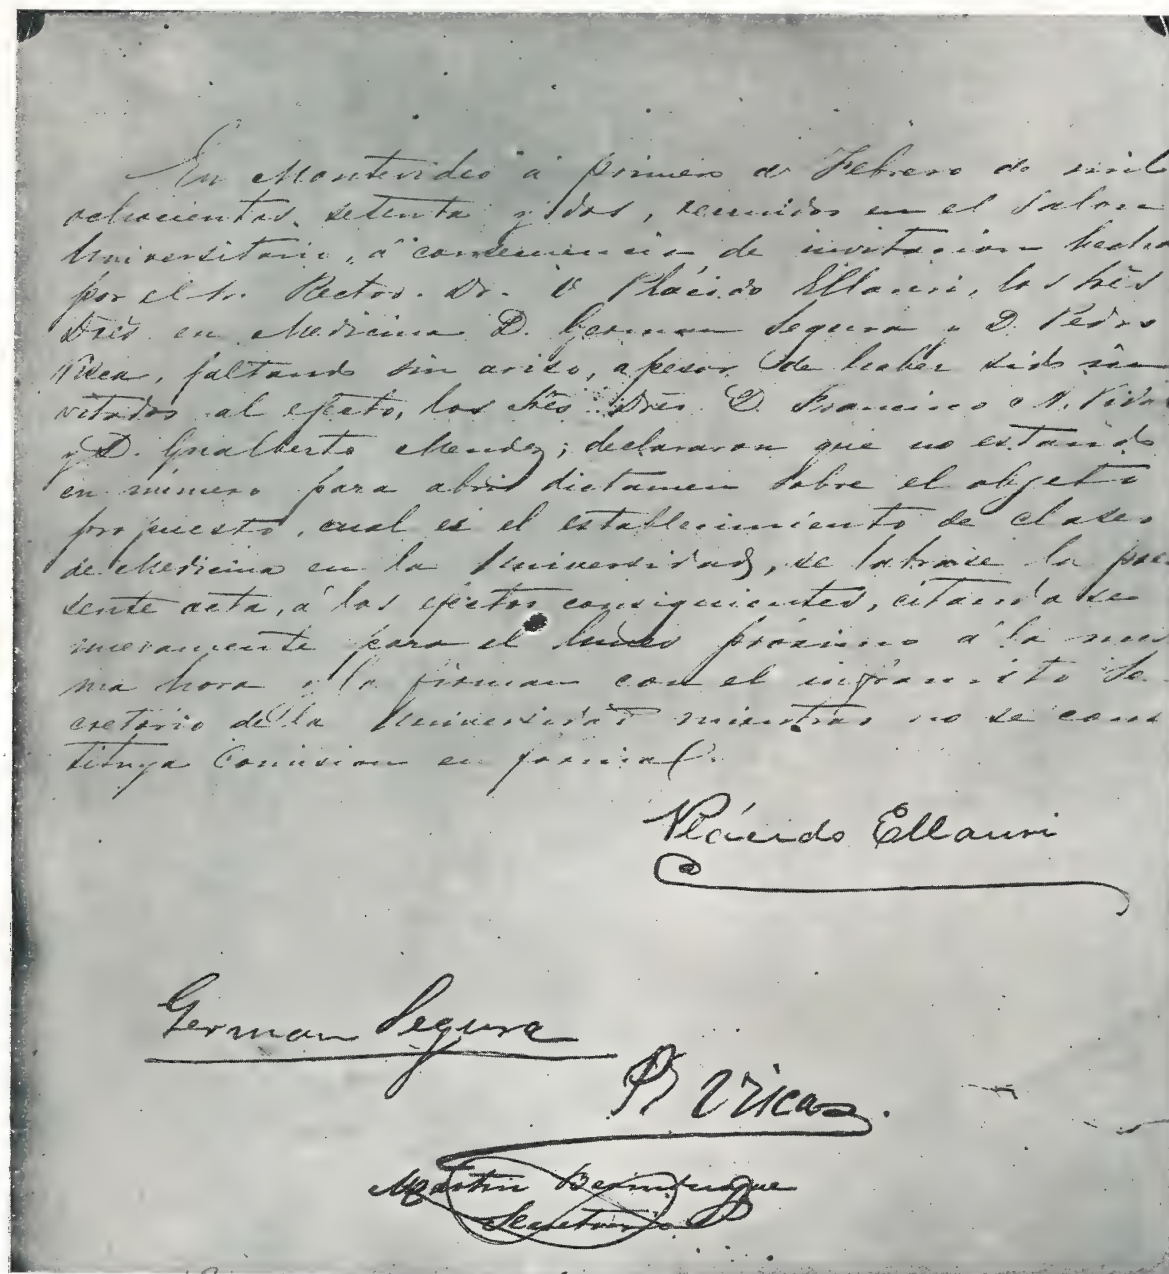 En Montevideo á primero de Febrero de mil
ochocientos setenta y dos, reunidos en el Salon
Universitario, á consecuencia de invitacion hecha
por el Sr. Rector Dr. D. Plácido Ellauri, los Srês
Drês en Medicina D. German Segura y D. Pedro
faltando sin aviso, apesar de haber sido in
vitados al efecto, los Srês Drês D. Francisco A. Vidal
y D. Gualberto Mendez; declararon que no estando
en número para abrir dictamen sobre el objeto
propuesto, cual es el establecimiento de clases
de Medicina en la Universidad, se labrase la pre
sente acta, á los efectos consiguientes, citandose
nuevamente para el lunes próximo á la mis
ma hora y la firman con el infrascrito Se
cretario de la Universidad mientras no se cons
tituya Comision en forma.
Plácido Ellauri
German Segura
P Vica
Martin Berinduague
Secretario